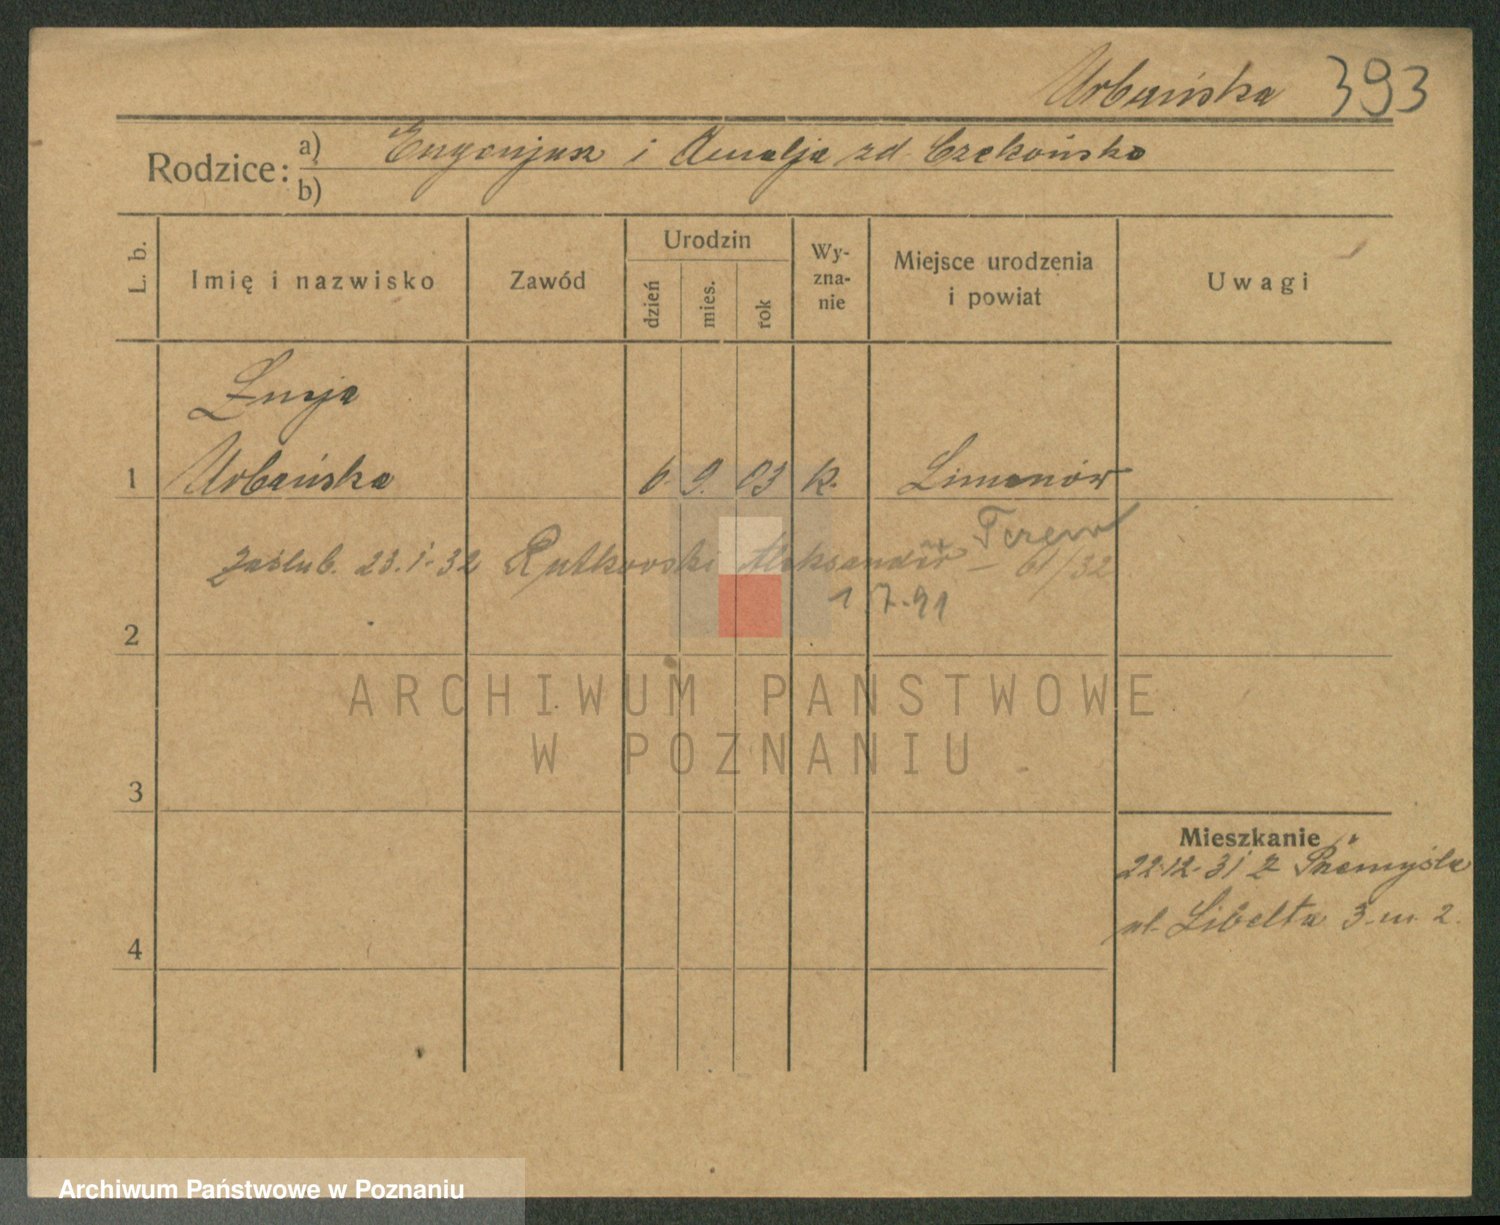 Urbańska 393
Rodzice: a) Eugenjusz i Amalja zd. Czekońska
b)
L. b.
Imię i nazwisko
Zawód
Urodzin
dzień
mies.
rok
Wy-
zna-
nie
Miejsce urodzenia
i powiat
Uwagi
Łucja
1 Urbańska 6. 9. 03 k. Limanów
zaślub. 23.1.32 Rutkowski Aleksander – 61/32
1.7.91
2
ARCHIWUM PAŃSTWOWE
W POZNANIU
3
Mieszkanie
22.12.31 z Przemyśla
ul. Libelta 3. m. 2.
4
Archiwum Państwowe w Poznaniu